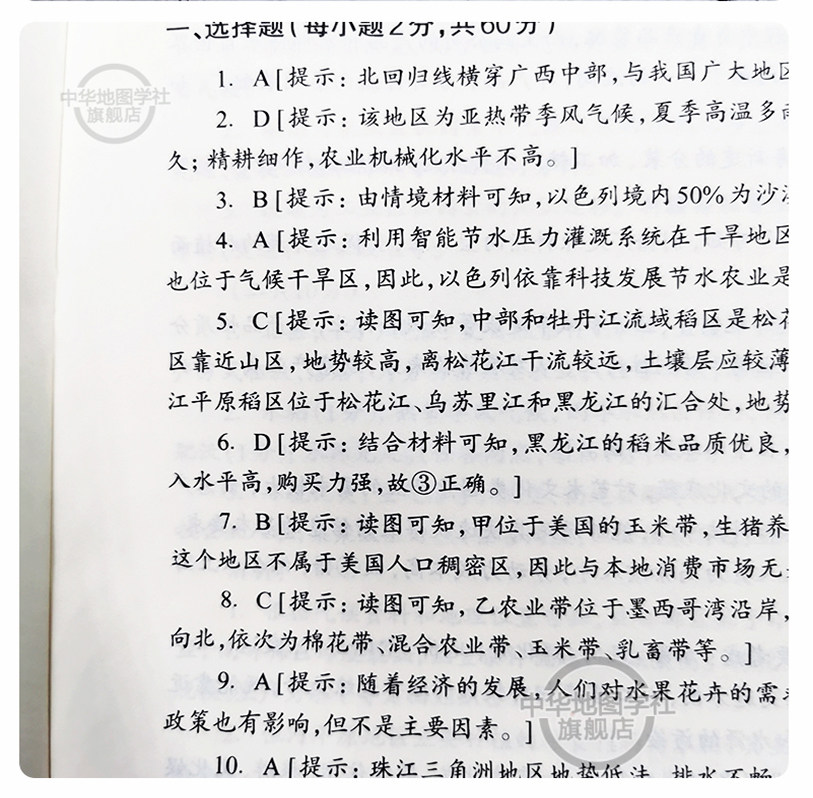 一、选择题(每小题2分,共60分)
1. A[提示: 北回归线横穿广西中部,与我国广大地区
中华地图学社
旗舰店
2. D[提示: 该地区为亚热带季风气候,夏季高温多
久; 精耕细作,农业机械化水平不高。]
3. B[提示: 由情境材料可知,以色列境内50%为沙
4. A[提示: 利用智能节水压力灌溉系统在干旱地区
也位于气候干旱区,因此,以色列依靠科技发展节水农业是
5. C[提示: 读图可知,中部和牡丹江流域稻区是松花
区靠近山区,地势较高,离松花江干流较远,土壤层应较薄
江平原稻区位于松花江、乌苏里江和黑龙江的汇合处,地势
6. D[提示: 结合材料可知,黑龙江的稻米品质优良,
入水平高,购买力强,故③正确。]
7. B[提示: 读图可知,甲位于美国的玉米带,生猪养
这个地区不属于美国人口稠密区,因此与本地消费市场无
8. C[提示: 读图可知,乙农业带位于墨西哥湾沿岸,
向北,依次为棉花带、混合农业带、玉米带、乳畜带等。]
9. A[提示: 随着经济的发展,人们对水果花卉的需
政策也有影响,但不是主要因素。]
中华地图学社
旗舰店
10. A[提示: 珠江三角洲地区地势低洼,排水不畅